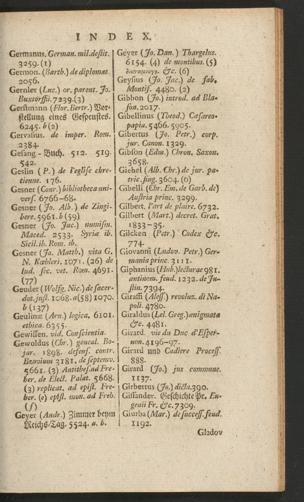 INDEX.
Germanus. German. mil. desit.
3259. (1)
Germon. (Barth.) de diplomat.
2056.
Gernler (Luc.) or. parent. Jo.
Buxtorffii. 7239. (3)
Gerstmann (Flor. Bertr.) Vor-
stellung eines Gespenstes.
6245. b (2)
Gervasius. de imper. Rom.
2384.
Gesang-Buch. 512. 519.
542.
Geslin (P.) de l'eglise chre-
tienne. 176.
Gesner (Conr.) bibliotheca uni-
vers. 6766-68.
Gesner (Jo. Alb.) de Zingi-
bere. 5961. b (59)
Gesner (Jo. Jac.) numism.
Maced. 2533. Syria ib.
Sicil. ib. Rom. ib.
Gesner (Jo. Matth.) vita G.
N. Kœhleri. 1071. (26) de
lud. sæc. vet. Rom. 4691.
(77)
Geuder (Wolfg. Nic.) de sacer-
dot. just. 1068. a (58) 1070.
b (137)
Geulinx (Arn.) logica, 6101.
ethica. 6355.
Gewissen. vid. Conscientia.
Gewoldus (Chr.) geneal. Bo-
jar. 1898. defens. contr.
Bzovium 3181. de septemv.
5661. (3) Antithes. ad Fre-
her. de Elect. Palat. 5668.
(3) replicat. ad epist. Fre-
her. (e) epist. mon. ad Freh.
(f)
Geyer (Andr.) Zimmer beym
Reichs-Tag. 5524. a. b.
Geyer (Jo. Dan.) Thargelus.
6154. (4) de montibus. (5)
&c. (6)
Geysius (Jo. Jac.) de fab.
Montis. 4480. (2)
Gibbon (Jo.) introd. ad Bla-
son. 2017.
Gibellinus (Theod.) Cæsareo-
papia. 5406. 5905.
Gibertus (Jo. Petr.) corp.
jur. Canon. 1329.
Gibson (Edm.) Chron. Saxon.
3658.
Gichel (Alb. Chr.) de jur. pa-
tric. sing. 3604. (6)
Gibelli (Chr. Em. de Garb. de)
Austria princ. 3299.
Gilbert. l'art de plaire. 6732.
Gilbert (Mart.) decret. Grat.
1833-35.
Gilcken (Patr.) Codex &c.
774.
Giovanni (Ludov. Petr.) Ger-
mania princ. 3111.
Giphanius (Hub.) lectura 981.
antinom. feud. 1232. de Ju-
stin. 7394.
Giraffi (Aless.) revoluz. di Na-
poli. 4780.
Giraldus (Lel. Greg.) ænigmata
&c. 4481.
Girard. vie du Duc d'Esper-
non. 4196-97.
Girard und Cadiere Process.
888.
Girard (Jo.) jus commune.
1137.
Girbertus (Jo.) dicta. 390.
Gissander. Geschichte Pr. Eu-
genii Fr. &c. 7309.
Giurba (Mar.) de success. feud.
1192.
Gladov